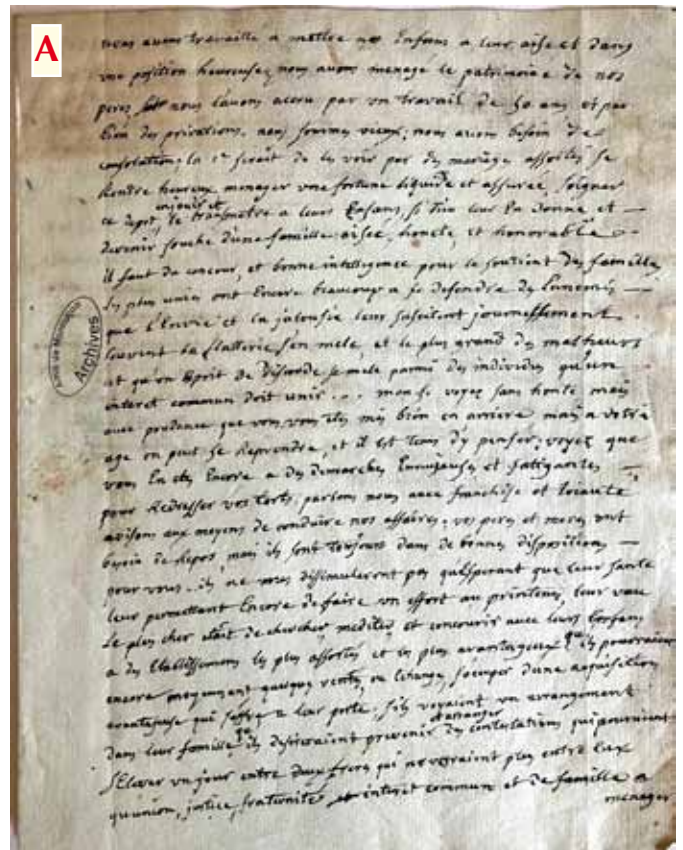 A
nous avons travaillé a mettre nos Enfans a leur aise et dans
une position heureuse, nous avons menagé le patrimoine de nos
peres nous l'avons acru par un travail de 50 ans et par
bien des privations. nous sommes vieux; nous avons besoin de
consolation; la 1re serait de les voir par des mariages assortis se
Rendre heureux menager une fortune liquide et assurée, soigner
ce depot, le transmettre a leurs Enfans, si dieu leur En donne et
devenir souche d'une famille aisée, honete, et honorable
il faut du concour, et bonne intelligence pour le soutient des familles
les plus unies ont Encore beaucoup a se defendre des Ennemis
que l'Envie et la jalousie leur suscitent journellement.
souvent la flatterie s'en mele, et le plus grand des malheurs
est qu'un Esprit de Discorde se mele parmi des individus qu'un
interet commun doit unir ... voyez sans honte mais
avec prudence que vous vous etes mis bien en arriere mais a votre
age on peut se Reprendre, et il est tems d'y penser; voyez que
vous En etes Encore a des demarches Ennuyeuses et fatigantes
pour Redresser vos torts; parlons nous avec franchise et
avisons aux moyens de conduire nos affaires; vos peres et meres ont
besoin de Repos, mais ils sont toujours dans de bonnes dispositions
pour vous. ils ne vous dissimuleront pas qu'Esperant que leur santé
leur permettant Encore de faire un effort au printems, leur vœu
Le plus cher etait de chercher, mediter, et concourir avec leurs Enfans
a des Etablissemens les plus assortis et les plus avantageux. ils pourraient
encore moyennant quelques ventes, ou Echange, s'occuper d'une aquisition
avantageuse qui s'offre a leur porte. s'ils voyaient un arrangement
dans leur famille, ils desireraient prevenir des contestations qui pourraient
s'Elever un jour entre deux freres qui ne verraient plus entre Eux
qu'union, justice, fraternité, interet commun et de famille a
menager
Archives